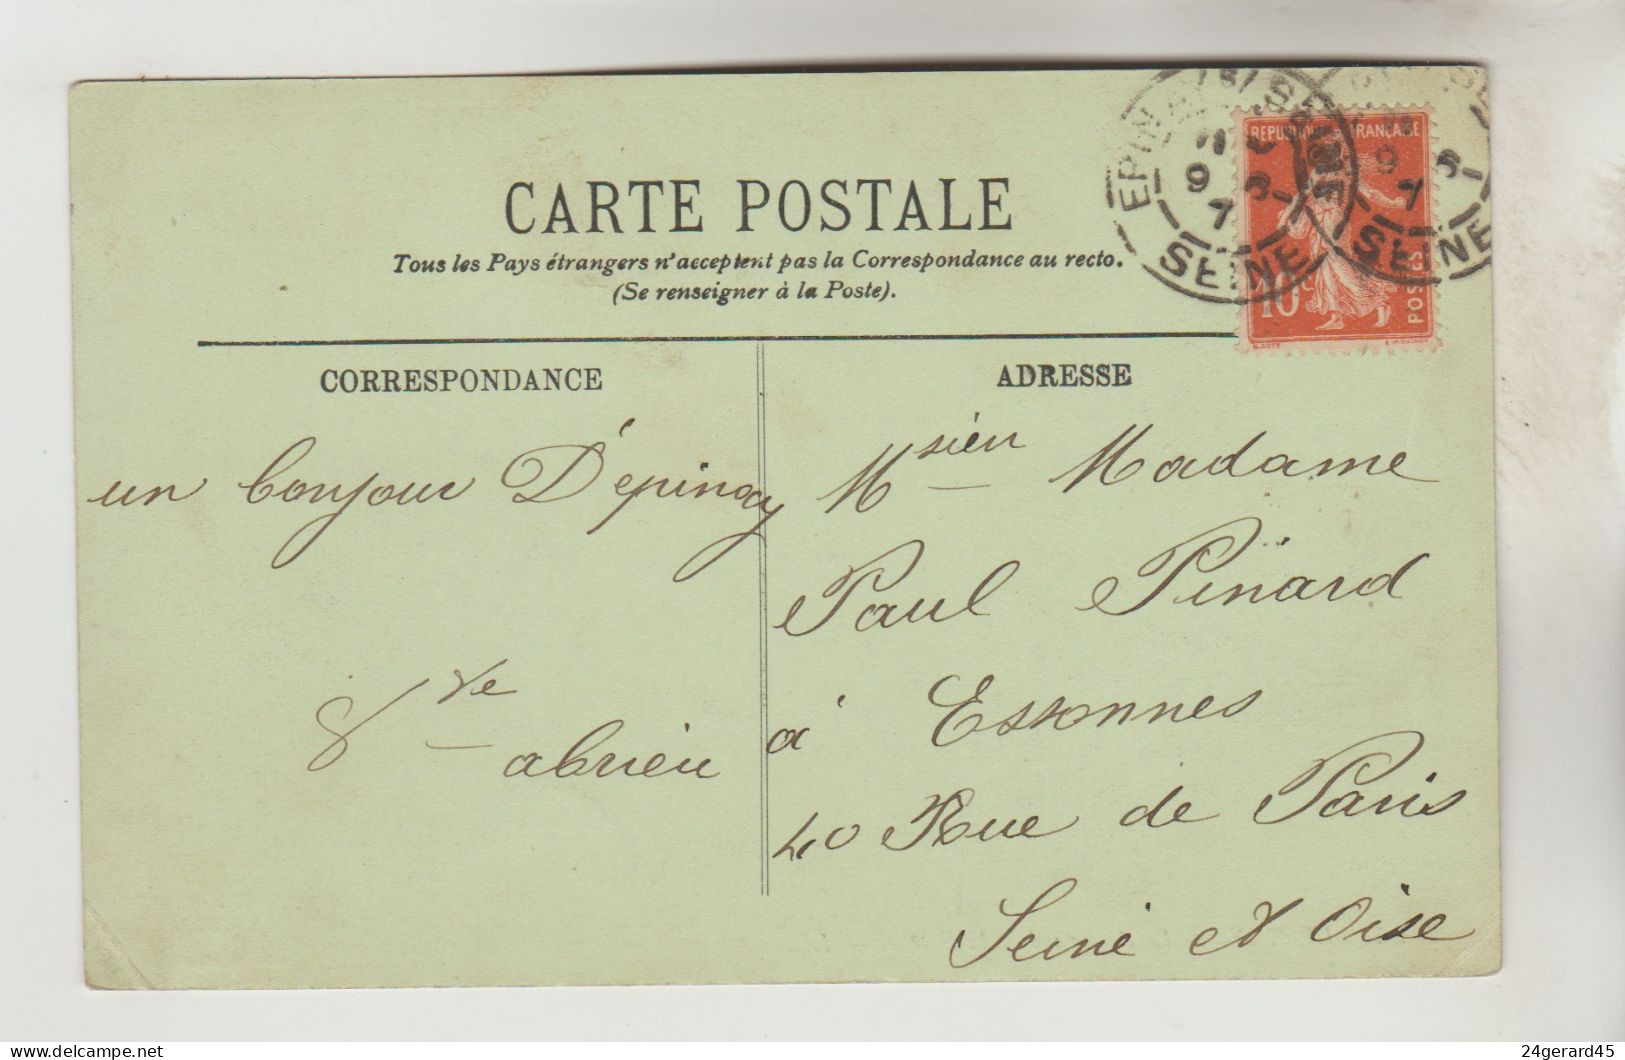 CARTE POSTALE
Tous les Pays étrangers n'acceptent pas la Correspondance au recto.
(Se renseigner à la Poste).
EPINAY S/ SEINE
9
7
SEINE
9
7
SEINE
REPUBLIQUE FRANÇAISE
10c
POSTES
CORRESPONDANCE
ADRESSE
un bonjour D'épinay
abrieu
Msieu Madame
Paul Pinard
à Essonnes
40 Rue de Paris
Seine et Oise
24gerard45